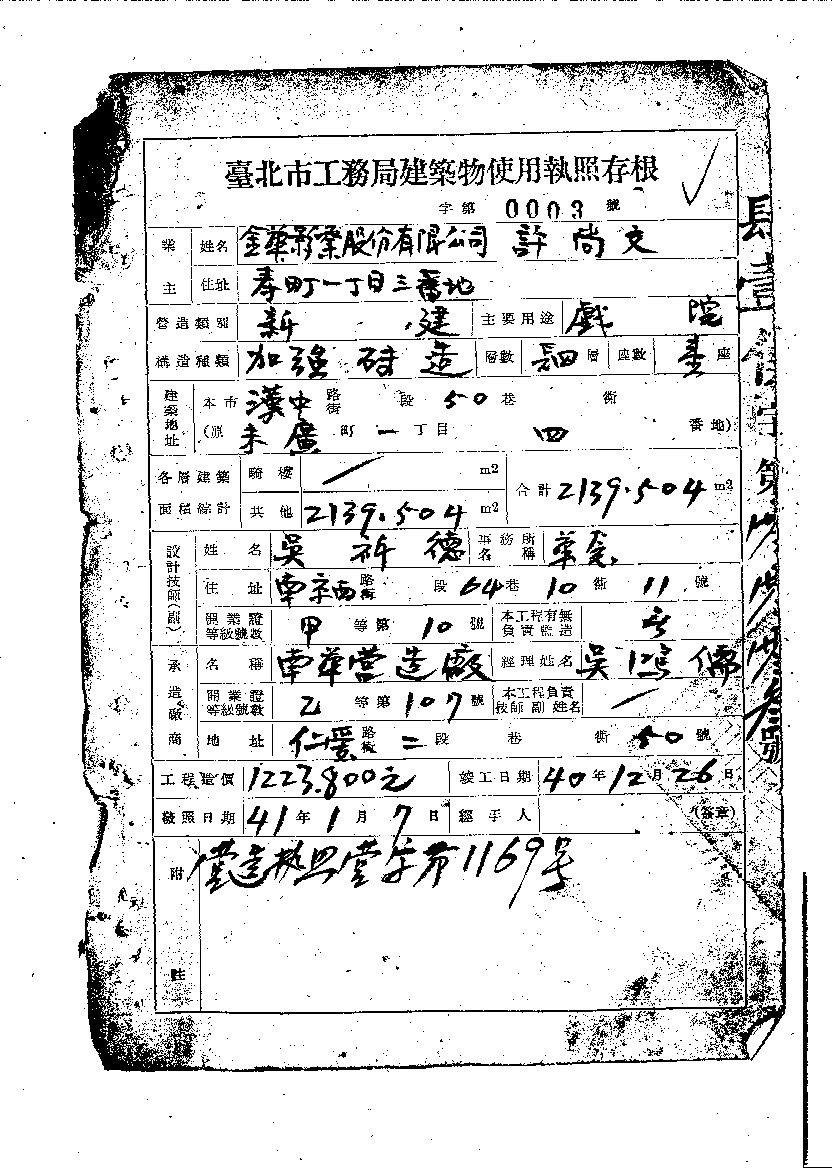 臺北市工務局建築物使用執照存根
字第 0003 號
業主 姓名 金華影業股份有限公司 許尚文
住址 壽町一丁目三番地
營造類別 新建 主要用途 戲院
構造種類 加強磚造 層數 四層 座數 壹座
建築地址 本市 漢中 路街 段 50 巷 街
(原 末廣 町 一 丁目 四 番地)
各層建築面積綜計 騎樓 / m2 合計 2139.504 m2
其他 2139.504 m2
設計技師(副) 姓名 吳 德 事務所名稱
住址 南京西 路街 段 64 巷 10 街 11 號
開業證等級號數 甲 等第 10 號 本工程有無負責監造
承造廠商 名稱 南華營造廠 經理姓名 吳鴻儒
開業證等級號數 乙 等第 107 號 本工程負責技師副姓名 /
地址 仁愛 路街 二 段 巷 街 50 號
工程造價 1223.800元 竣工日期 40 年 12 月 26 日
發照日期 41 年 1 月 7 日 經手人 (簽章)
附註 營造執照營字第1169号